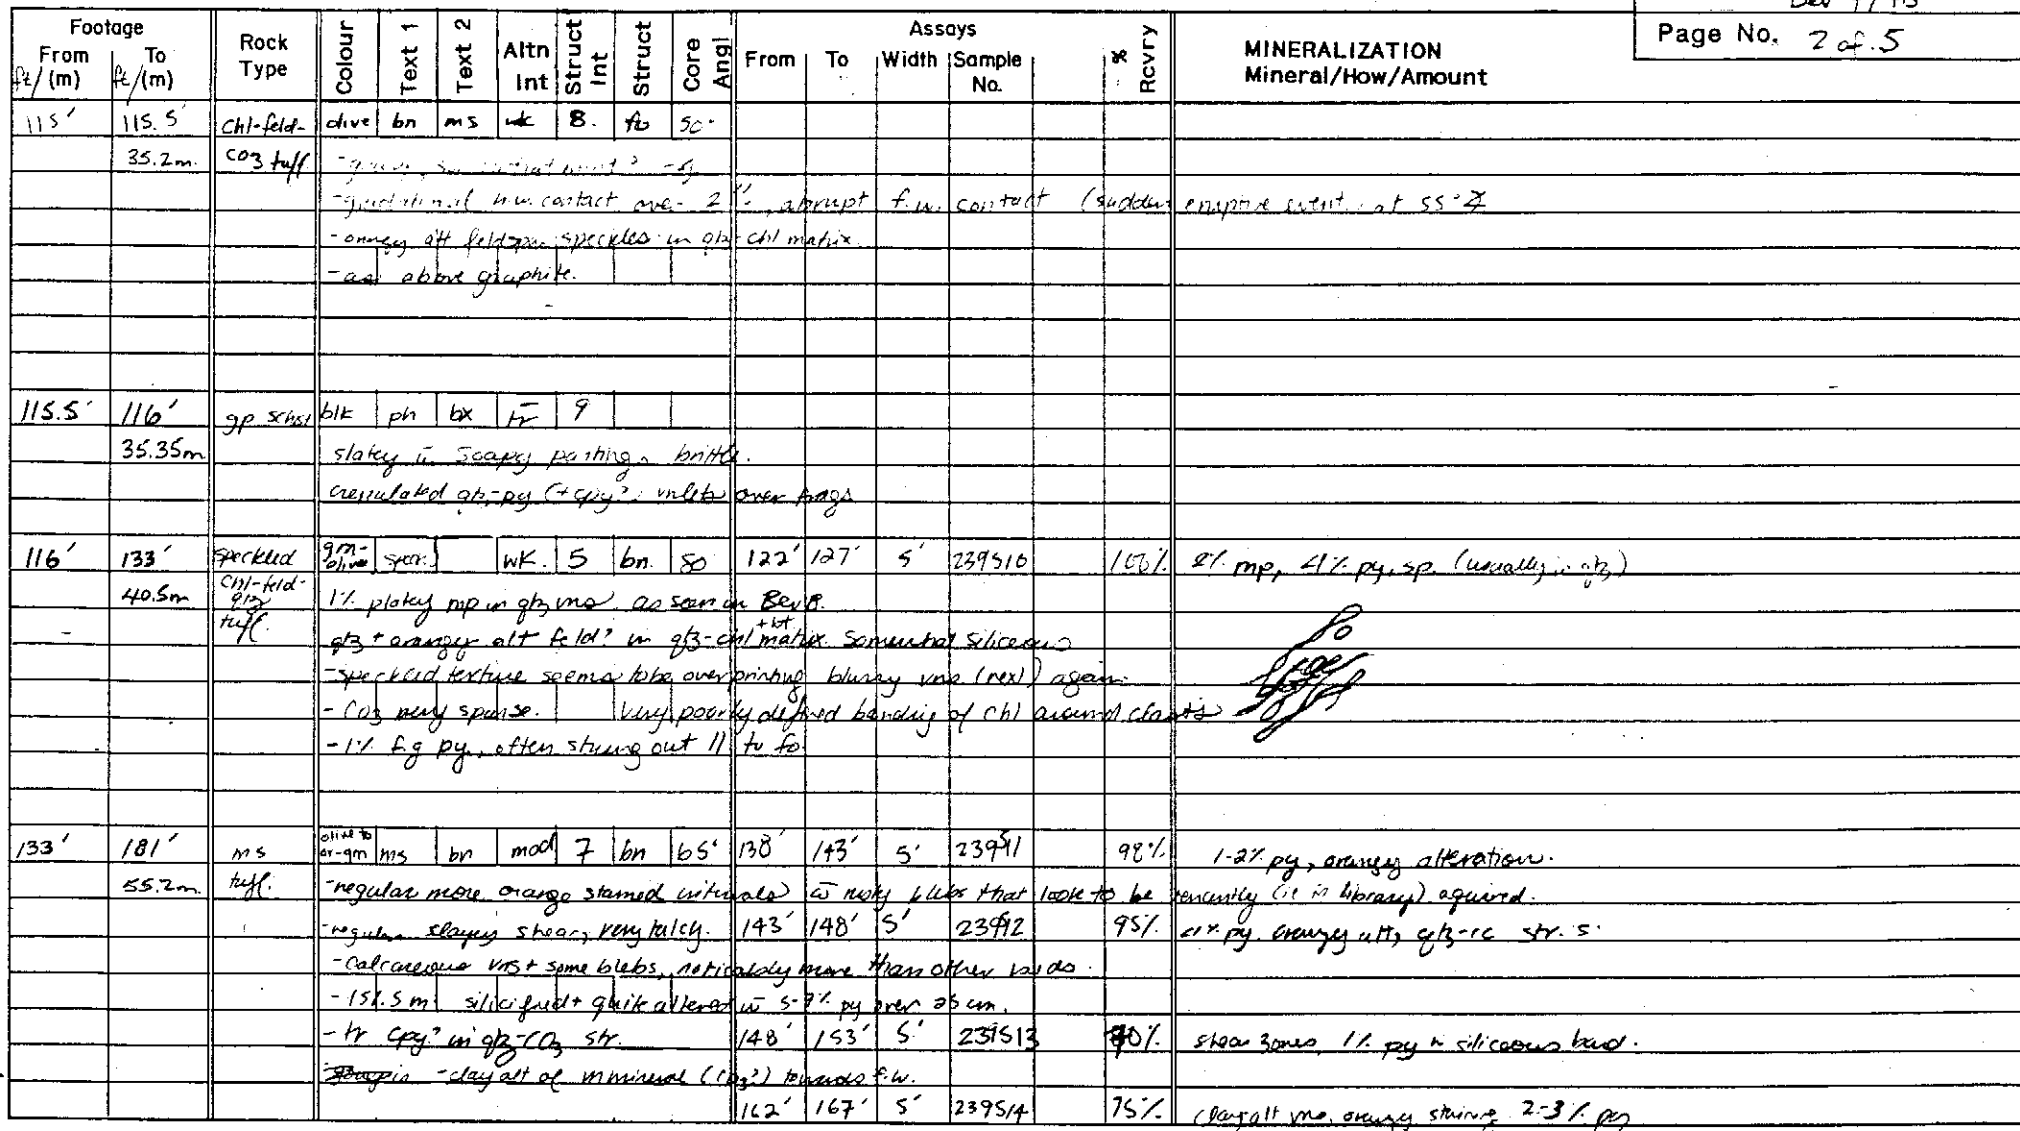 Page No. 2 of 5
Footage From ft/(m) To ft/(m) Rock Type Colour Text 1 Text 2 Altn Int Struct Int Struct Core Angl Assays From To Width Sample No. % Rcvry MINERALIZATION Mineral/How/Amount
115' 115.5' Chl-feld- olive bn ms wk 8. fo 50°
35.2m. CO3 tuff
-gradational h.w. contact over 2", abrupt f.w. contact (sudden eruptive event at 55°
-orangy alt feldspar speckles in qtz-chl matrix
-as above graphite.
115.5' 116' gp schst blk ph bx tr 9
35.35m slatey soapy parting, brittle.
crenulated qtz-py (+cpy?) vnlets over frags
116' 133' speckled grn-olive wk. 5 bn. 50 122' 127' 5' 239510 100% mp, <1% py, sp. (usually in qtz)
40.5m chl-feld-qtz tuff. 1% platey mp in qtz vns as seen in Bev 8.
qtz + orangey alt feld? in qtz-chl +bt matrix. Somewhat siliceous
-speckled texture seems to be overprinting blurry vns (rexl) again.
- CO3 very sparse. Very poorly defined banding of chl around clasts
-1% f.g py, often strung out || to fo
133' 181' ms olive to or-grn ms bn mod 7 bn 65° 138' 143' 5' 239511 98% 1-2% py, orangey alteration.
55.2m. tuff. -regular more orange stained intervals rusty blebs that look to be recently (ie in library) aquired.
-regular clayey shears, very talcy. 143' 148' 5' 239512 95% <1% py. orangey alt, qtz-cc str.'s.
-calcareous vns + some blebs, noticably more than other
- silicified + quite altered py over 25 cm.
- tr cpy? in qtz-CO3 str. 148' 153' 5' 239513 90% shear zones, 1% py in siliceous band.
-clay alt of mineral (CO3?) towards f.w.
162' 167' 5' 239514 75% clay alt vns, orangy staining 2-3% py